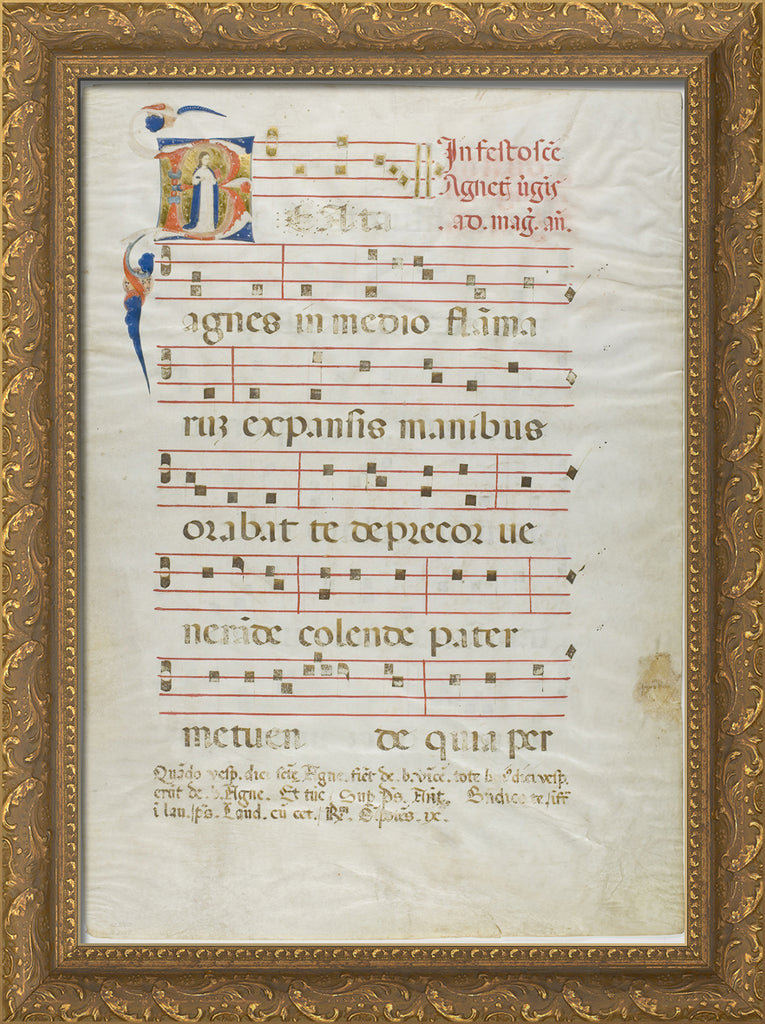 In festo sc̄e
Agnet̄ ūgīs
ad. mag̃. añ.
BEAta
agnes in medio flāma
ruꝫ expansis manibus
orabat te deprecor ue
nerāde colende pater
metuen de quia per
Quādo vesp. diei sc̄e Agne. fiēt de. b. vīncē. tote
erūt de. b. Agne. Et tūc Sub p̄s. Ant.
ī lau. p̄s. Laud. cū cet.